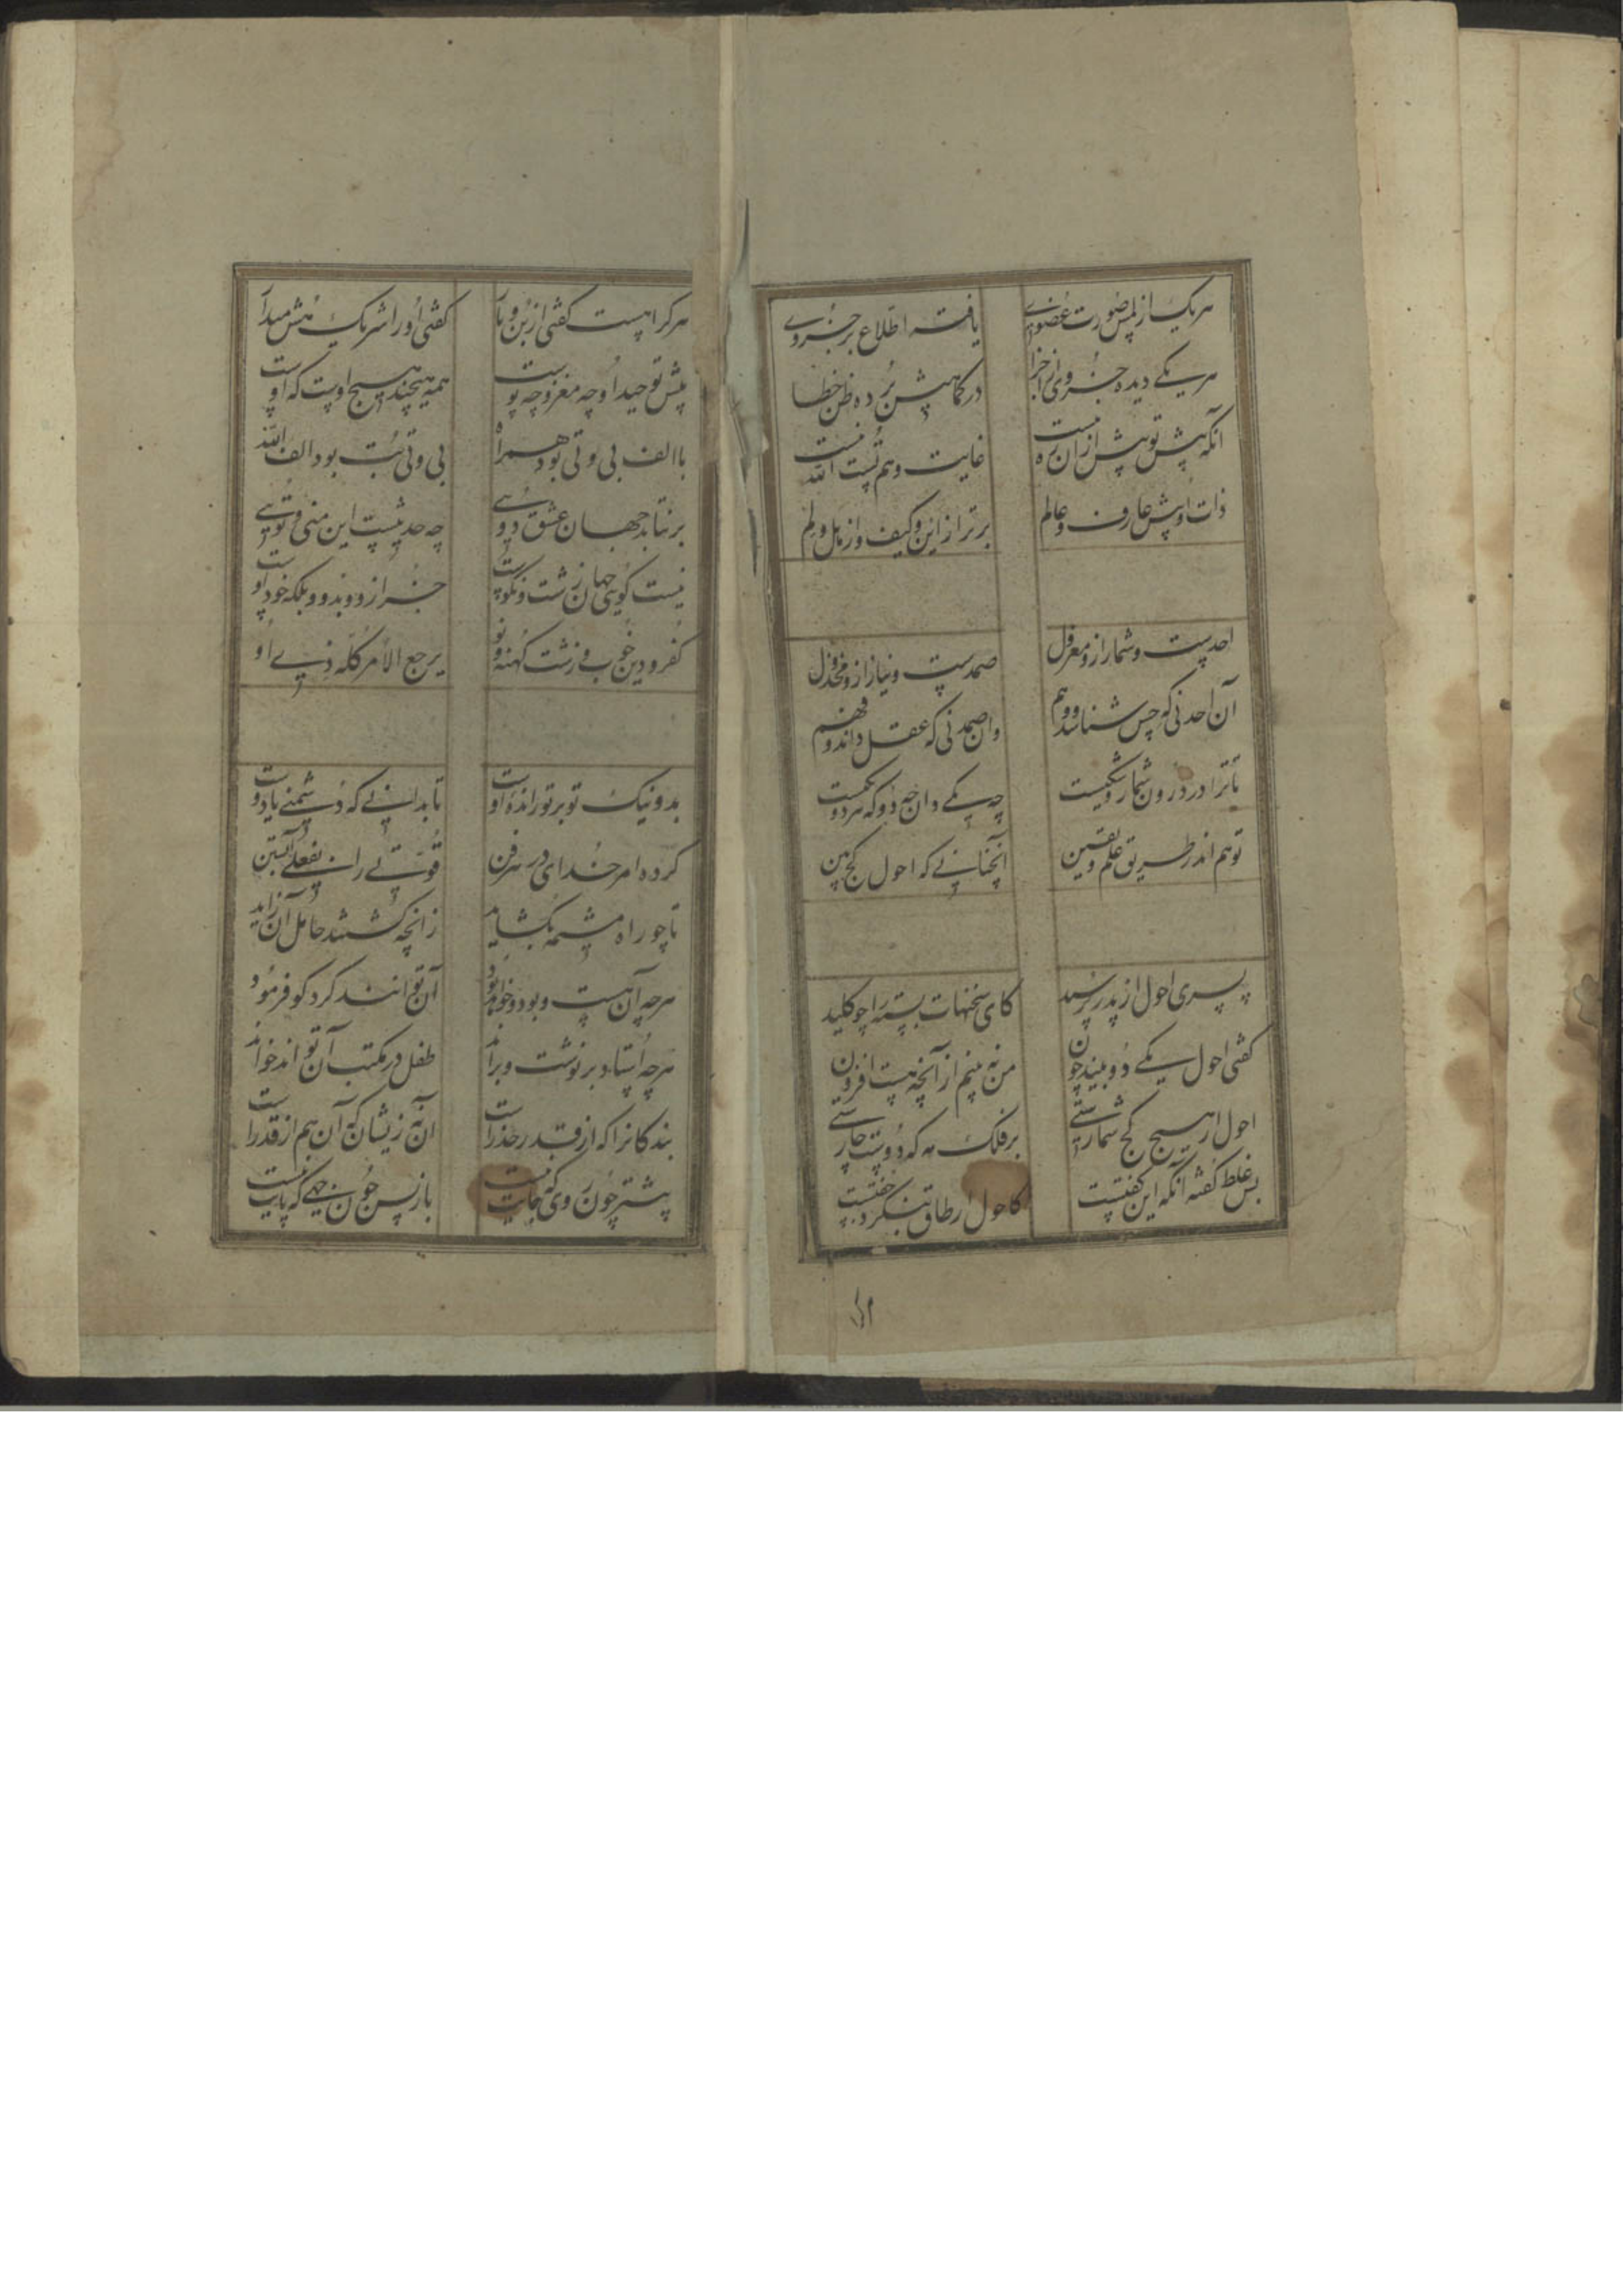 هر یک از لمس صورت عضوی یافته اطلاع بر جزوی
هر یکی دیده جزوی از اجزا در کمالش برده ظن خطا
آنکه پیش تو پیش ازان ره نیست غایت وهم تست الله نیست
ذات او پیش عارف و عالم برتر از این و کیف و از هل و لم
احدست و شمار ازو معزول صمدست و نیاز ازو مخذول
آن احد نی که حس شناسد و وهم وان صمد نی که عقل داند و فهم
تا ترا در درون شمار و شکیست چه یکی دان چه دو که هر دو یکیست
تو هم اندر طریق علم و یقین آنچنانی که احول کج بین
پسری احول از پدر پرسید کای سخنهات بسته را چو کلید
گفتی احول یکی دو بیند چون من نه بینم از آنچه هست افزون
احول ار هیچ کج شمارستی بر فلک مه که دوست چارستی
پس غلط گفته آنکه این گفتست کاحول ار طاق بنگرد جفتست
هر کرا هست گفتی از بن و بار گفتی او را شریک هش میدار
پیش توحید او چه مغز و چه پوست همه هیچند هیچ اوست که اوست
با الف بی و تی بود همراه بی و تی بت بود الف الله
برنتابد جهان عشق دویی چه حدیثست این منی و تویی
نیست گویی جهان ز شت و نکوست جز ازو و بدو و بلکه خود اوست
کفر و دین خوب و زشت کهنه و نو یرجع الامر کله زی او
بد و نیک تو بر تو رانده اوست تا بدانی که دشمنی یا دوست
کرده امر خدای در هر فن قوتی را بفعلی آبستن
تا چو راه مشیمه بگشاید زانچه کشتند حامل آن زاید
هر چه آن هست و بود و خواهد بود آن توانند کرد کو فرمود
هر چه استاد بر نوشت و براند طفل در مکتب آن تواند خواند
بندگانرا که از قدر حذرست آن نه زیشان که آن هم از قدرست
پیشتر چون روی که جایت نیست باز پس چون جهی که پایت نیست